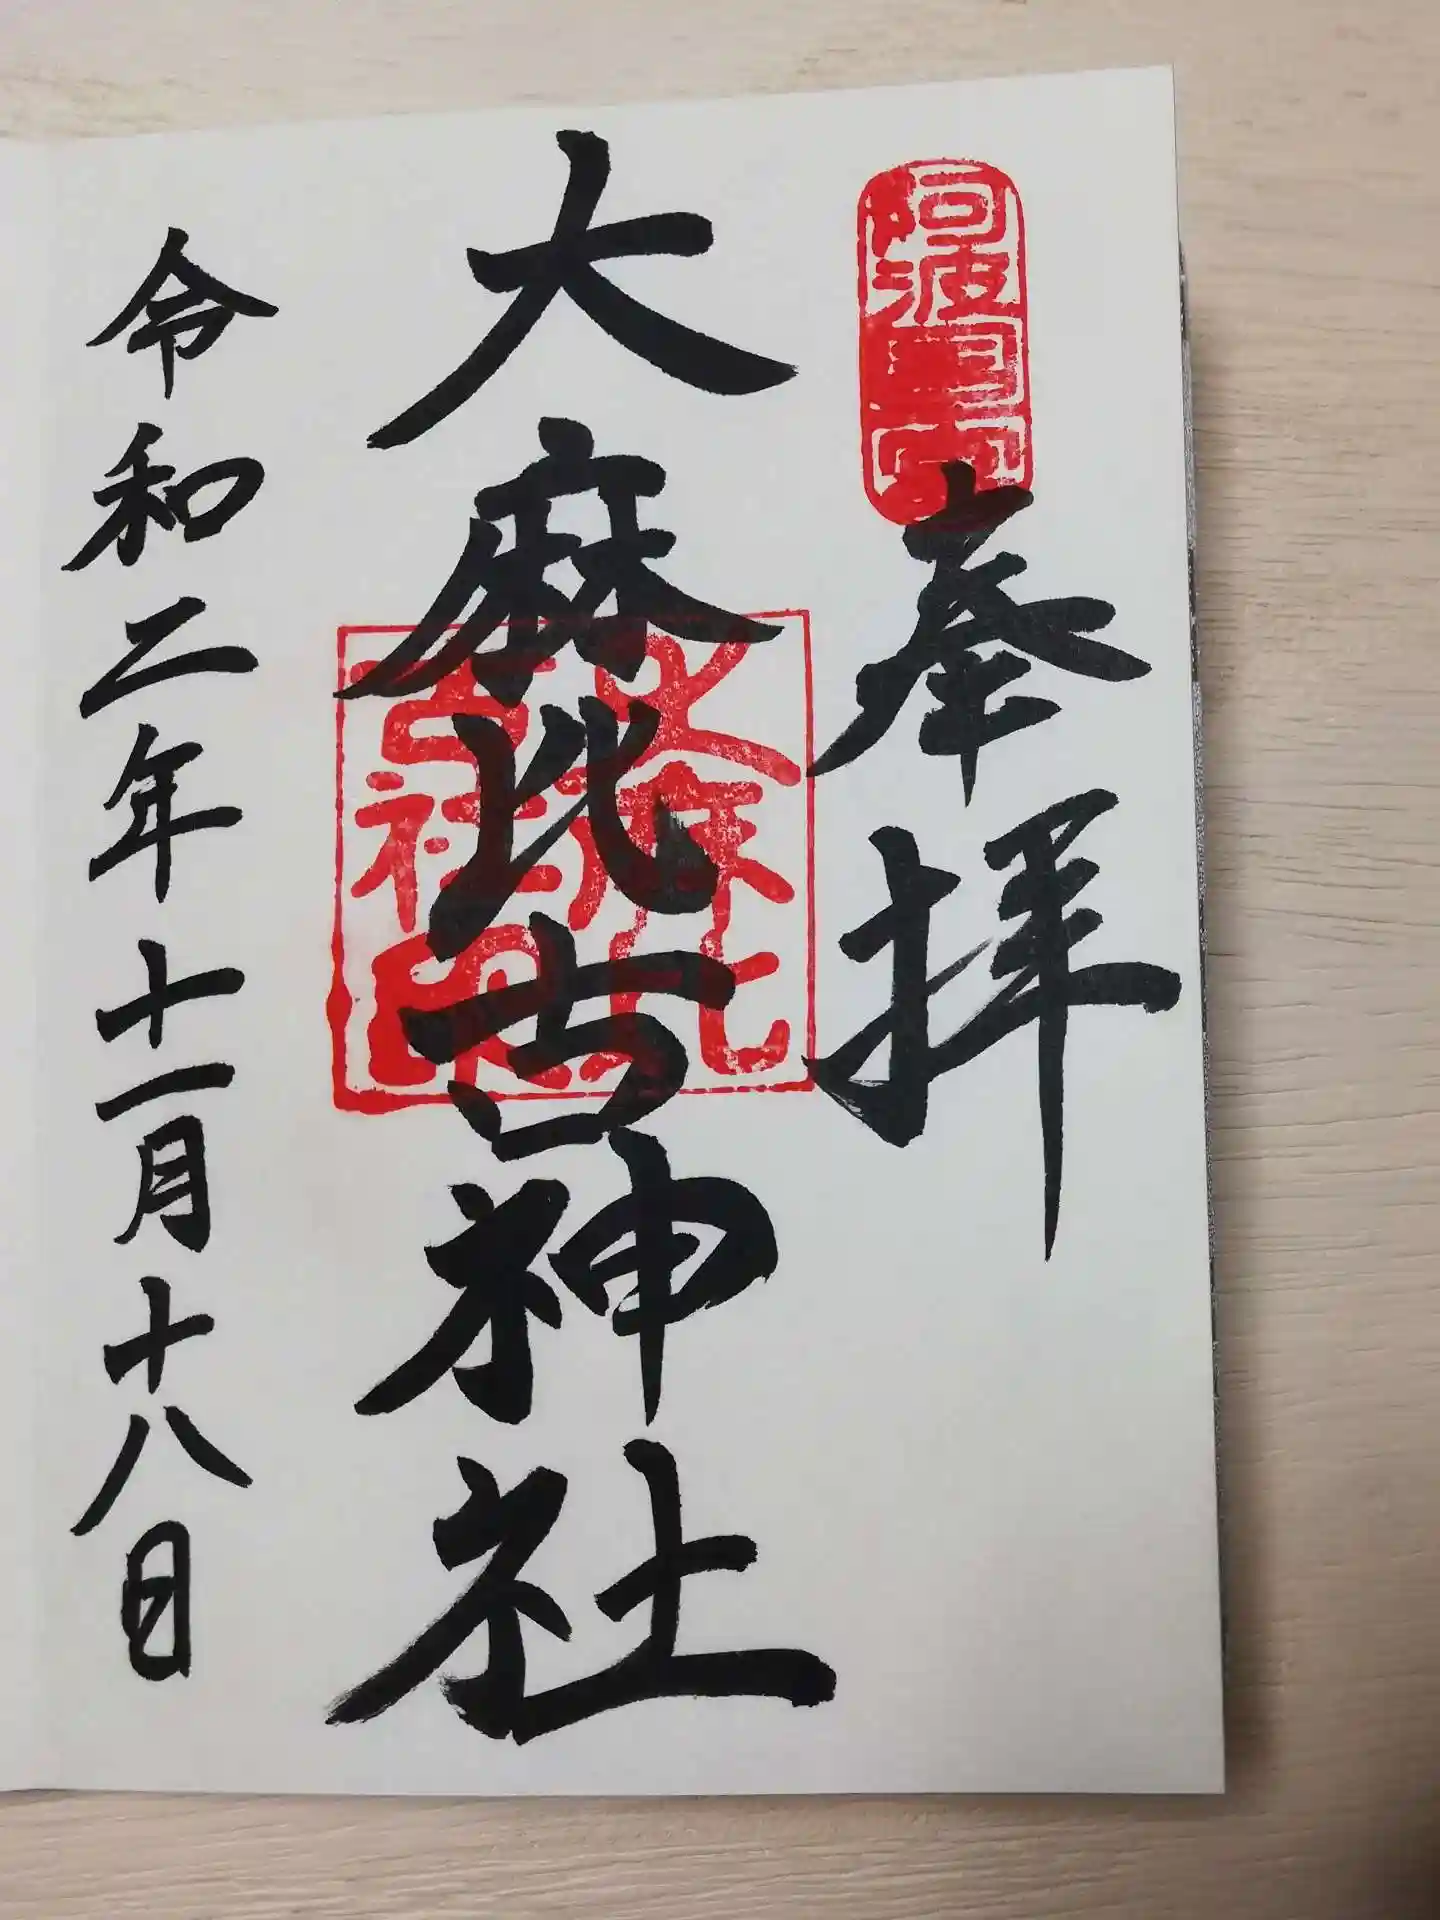 阿波國一宮
奉拝
大麻比古神社
大麻比古社印
令和二年十一月十八日